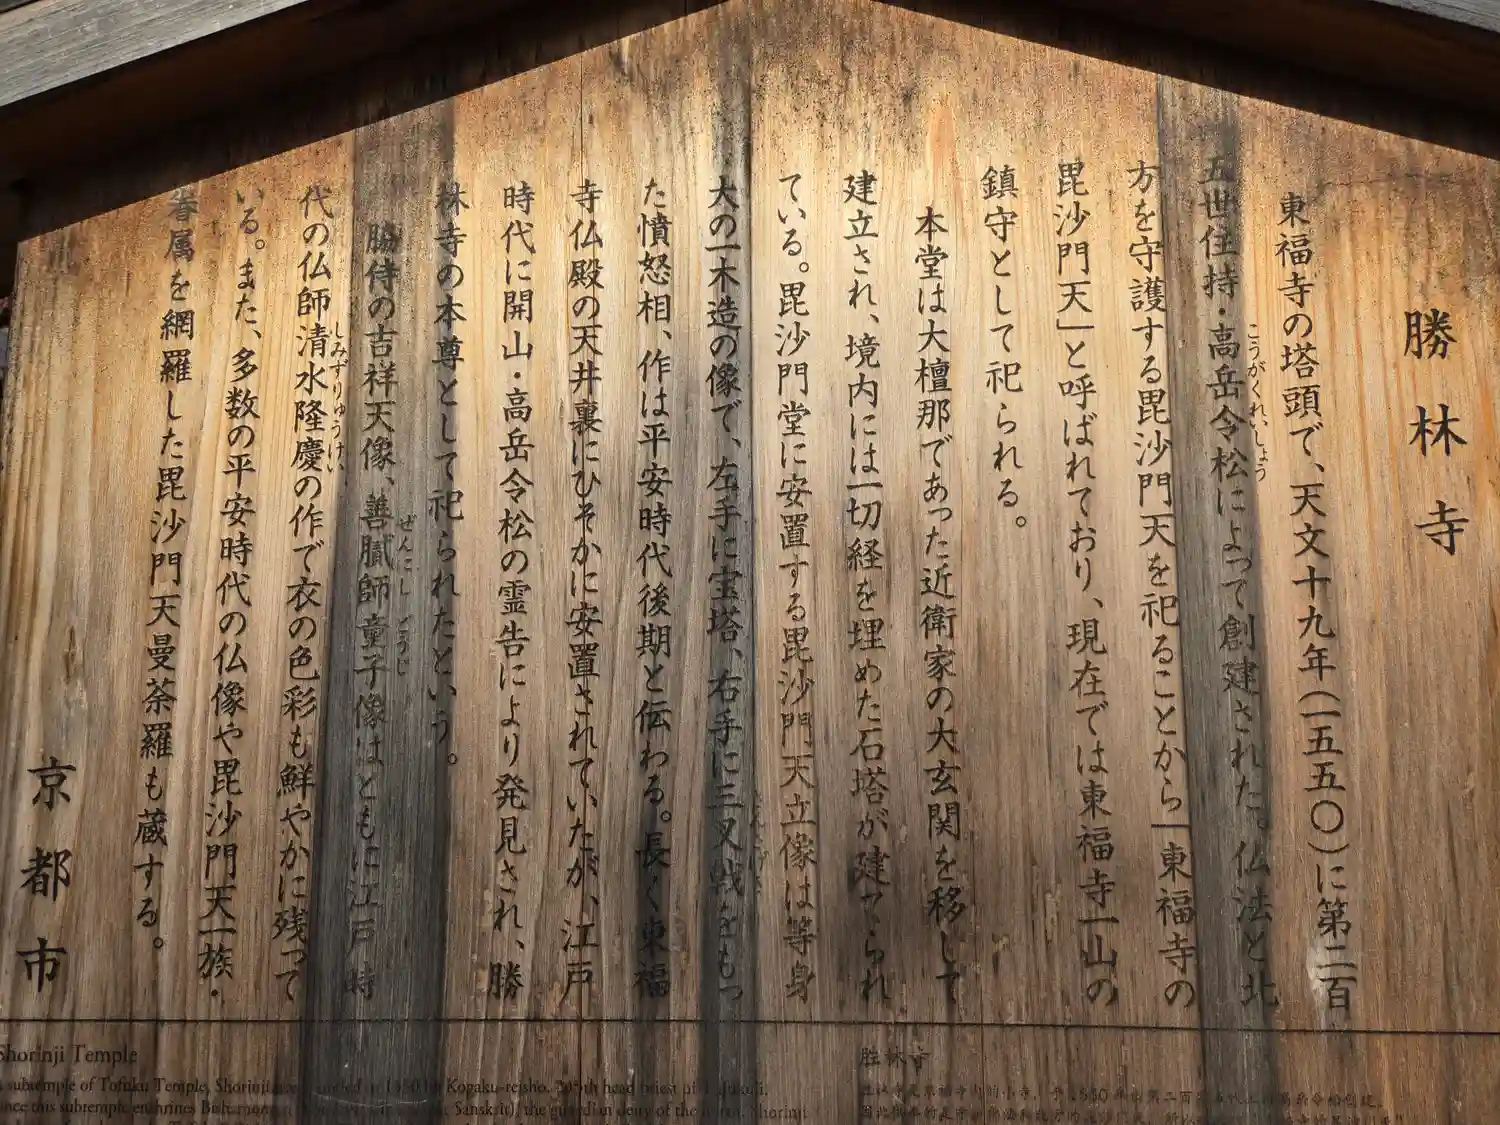 勝林寺
東福寺の塔頭で、天文十九年(一五五〇)に第二百
五世住持・高岳令松によって創建された。仏法と北
こうがくれいしょう
方を守護する毘沙門天を祀ることから「東福寺の
毘沙門天」と呼ばれており、現在では東福寺一山の
鎮守として祀られる。
本堂は大檀那であった近衛家の大玄関を移して
建立され、境内には一切経を埋めた石塔が建てられ
ている。毘沙門堂に安置する毘沙門天立像は等身
大の一木造の像で、左手に宝塔、右手に三叉戟をもっ
た憤怒相、作は平安時代後期と伝わる。長く東福
寺仏殿の天井裏にひそかに安置されていたが、江戸
時代に開山・高岳令松の霊告により発見され、勝
林寺の本尊として祀られたという。
脇侍の吉祥天像、善膩師童子像はともに江戸時
ぜんにし どうじ
代の仏師清水隆慶の作で衣の色彩も鮮やかに残って
しみずりゅうけい
いる。また、多数の平安時代の仏像や毘沙門天一族・
眷属を網羅した毘沙門天曼荼羅も蔵する。
京都市
Shorinji Temple
subtemple of Tofuku Temple, Shorinji Kogaku-reisho, 205th head priest of
this subtemple enshrines Sanskrit), the guardian deity of the Shorinji
胜林寺